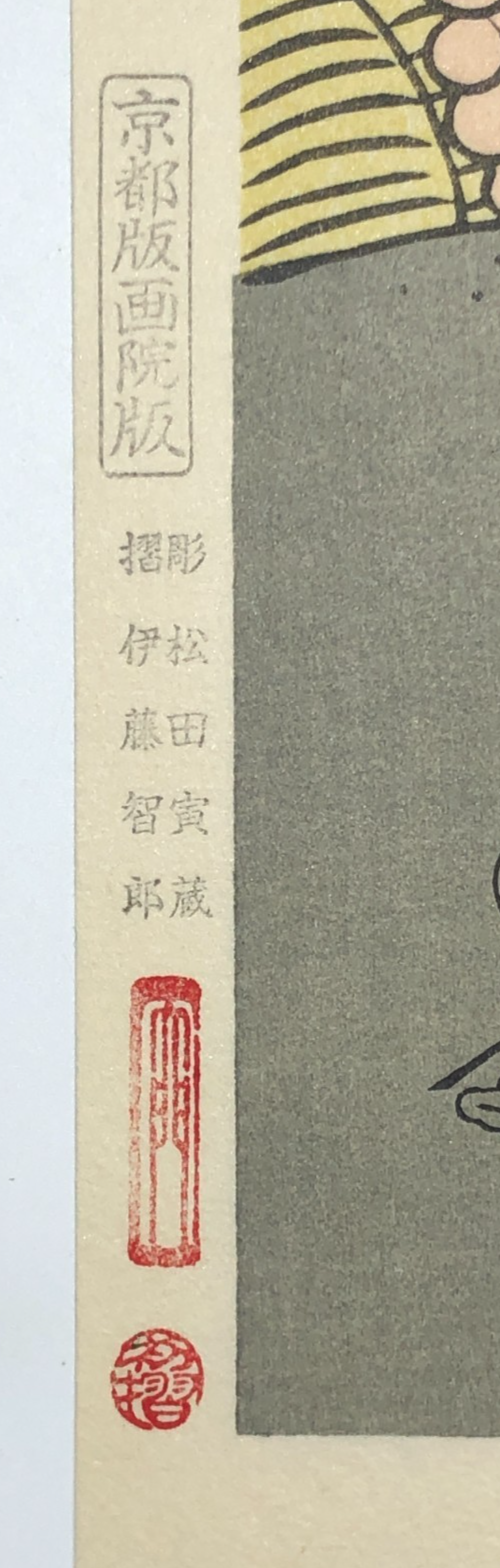 京都版画院版
彫 松田寅蔵
摺 伊藤智郎